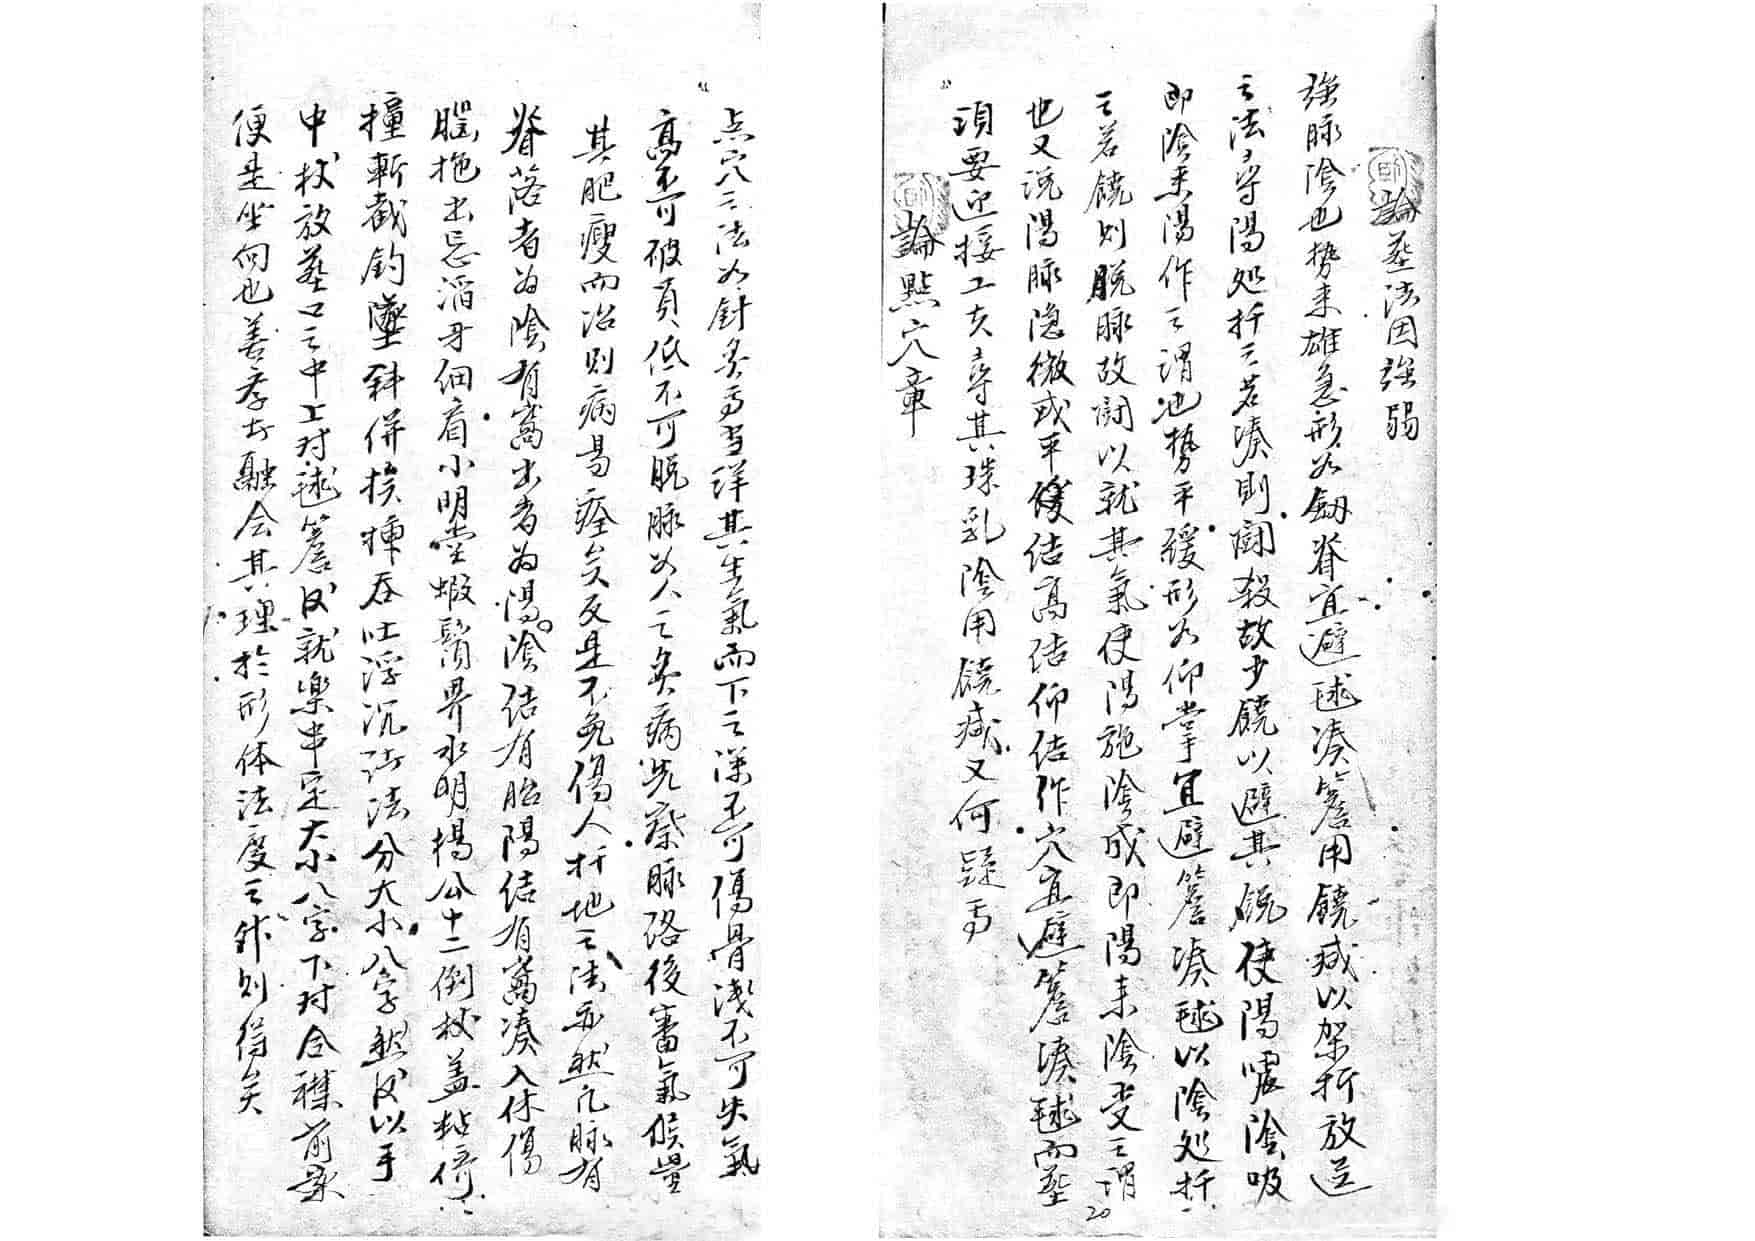 論葬法因強弱
強脉陰也勢来雄急形如劔脊宜避毬湊簷用饒减以架折放送
之法尋陽処扦之若湊則鬪殺故少饒以避其銳使陽嘘陰吸
即陰来陽作之謂也勢平緩形如仰掌宜避簷湊毬以陰処扦
之若饒则脱脉故鬪以就其氣使陽施陰成即陽来陰受之謂
也又流陽脉隐微或平緩结高结仰结作穴宜避簷湊毬而葬
項要迎接工夫尋其珠乳陰用饒减又何疑焉
論點穴章
点穴之法如針炙焉当详其生氣而下之深不可傷骨淺不可失氣
高不可破頂低不可脱脉如人之炙病先察脉络後審氣候量
其肥瘦而治则病易痊矣反是不免傷人扦地之法亦然凢脉有
脊落者为陰有窩出者为陽陰结有胎陽结有窩湊入休傷
腦拖出忌淊牙细看小明堂蝦鬚界水明楊公十二倒杖盖粘倚
撞斬截釣墜斜併挨揷吞吐浮沉诸法分大小八字然后以手
中杖放葬口之中上对毬簷后就樂串定大小八字下对合襟前親
便是坐向也善孝者融会其理於形体法度之外则得矣
20